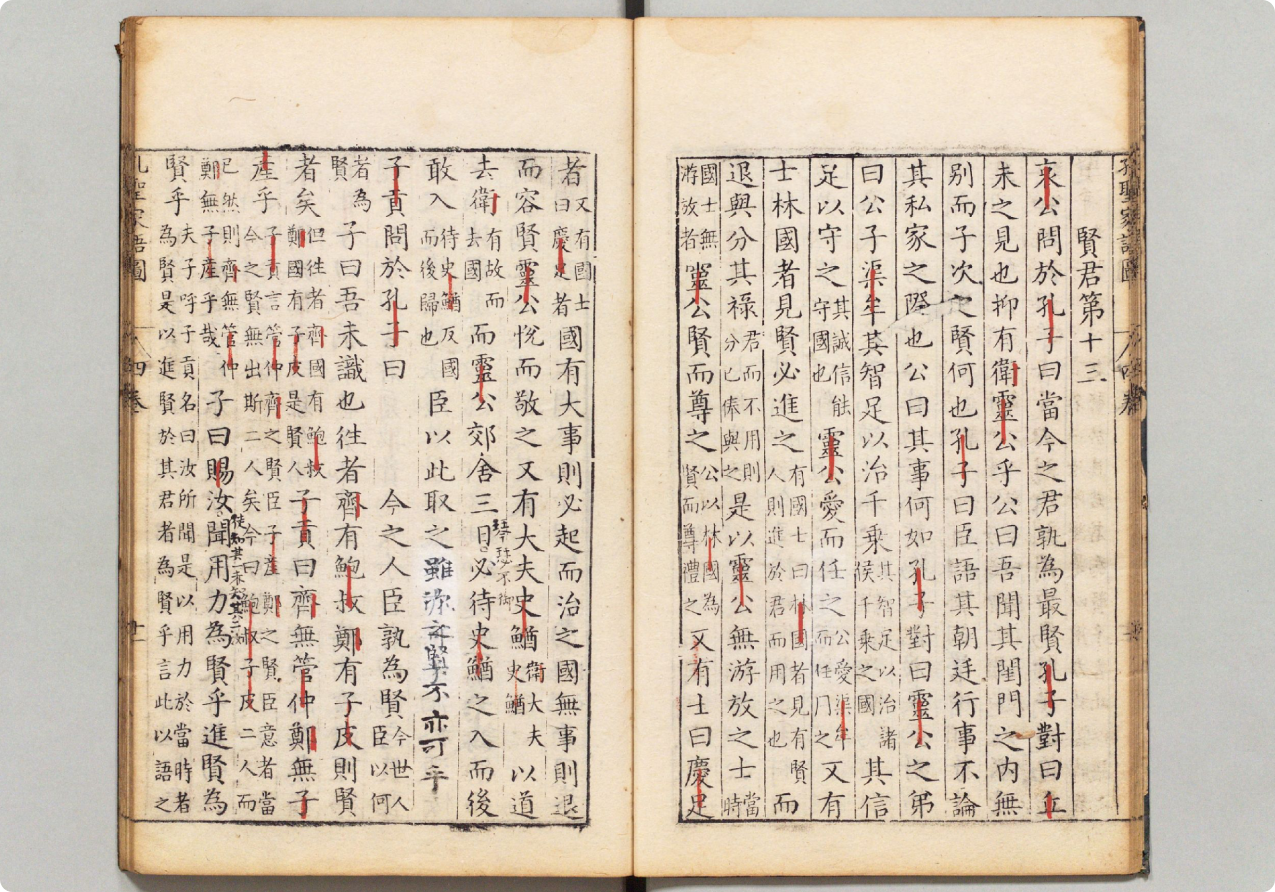 孔聖家語圖 卷
賢君第十三
哀公問於孔子曰當今之君孰為最賢孔子對曰丘
未之見也抑有衛靈公乎公曰吾聞其閨門之內無
別而子次之賢何也孔子曰臣語其朝廷行事不論
其私家之際也公曰其事何如孔子對曰靈公之弟
曰公子渠牟其智足以治千乘其智足以治諸侯千乘之國其信
足以守之其誠信能守國也靈公愛而任之公愛渠牟而任用之又有
士林國者見賢必進之有國士曰林國者見有賢人則進於君而用之也而
退與分其祿君而不用則分已俸與之是以靈公無游放之士當時
國士無游放者靈公賢而尊之公以林國為賢而尊禮之又有士曰慶足
者又有國士曰慶足者國有大事則必起而治之國無事則退
而容賢靈公悅而敬之又有大夫史鰌衛大夫史鰌以道
去衛有故而去國而靈公郊舍三日琴瑟不御必待史鰌之入而後
敢入待史鰌反國而後歸也臣以此取之雖次之賢不亦可乎
子貢問於孔子曰今之人臣孰為賢今世人臣以何
者為賢子曰吾未識也徃者齊有鮑叔鄭有子皮則賢
者矣但徃者齊國有鮑叔鄭國有子皮是賢人子貢曰齊無管仲鄭無子
產乎子貢言管仲齊之賢臣子產鄭之賢臣意者當今之賢無出斯二人矣今曰鮑叔子皮二人而
已然則齊無管仲鄭無子產乎哉子曰賜汝徒知其一未知其二也聞用力為賢乎進賢為
賢乎夫子呼子貢名曰汝所聞是以用力於當時者為賢是以進賢於其君者為賢乎言此以語之
孔聖家語圖 四卷